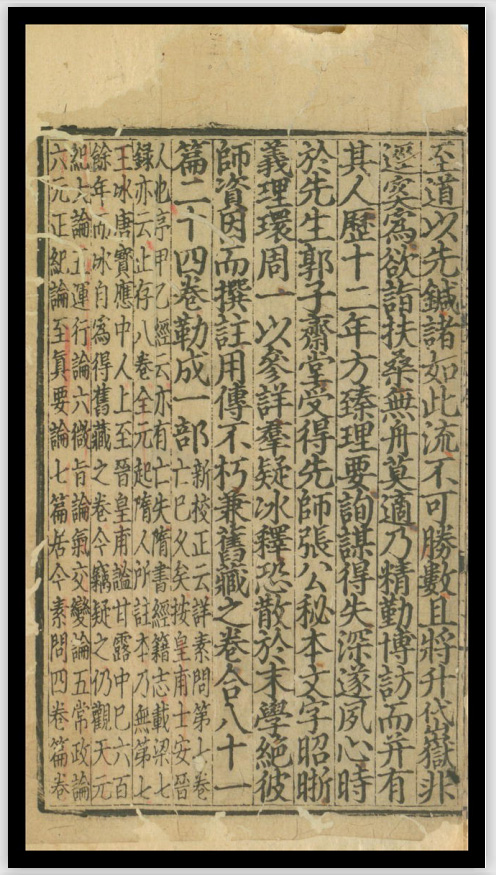 至道以先鍼諸如此流不可勝數且將升岱嶽非
逕奚為欲詣扶桑無舟莫適乃精勤博訪而并有
其人歷十二年方臻理要詢謀得失深遂夙心時
於先生郭子齋堂受得先師張公秘本文字昭晰
義理環周一以參詳羣疑冰釋恐散於末學絕彼
師資因而撰註用傳不朽兼舊藏之卷合八十一
篇二十四卷勒成一部
新校正云詳素問第七卷
亡已久矣按皇甫士安晉
人也序甲乙經云亦有亡失隋書經籍志載梁七
錄亦云止存八卷全元起隋人所註本乃無第七
王冰唐寶應中人上至晉皇甫謐甘露中已六百
餘年而冰自為得舊藏之卷今竊疑之仍觀天元
紀大論五運行論六微旨論氣交變論五常政論
六元正紀論至真要論七篇居今素問四卷篇卷